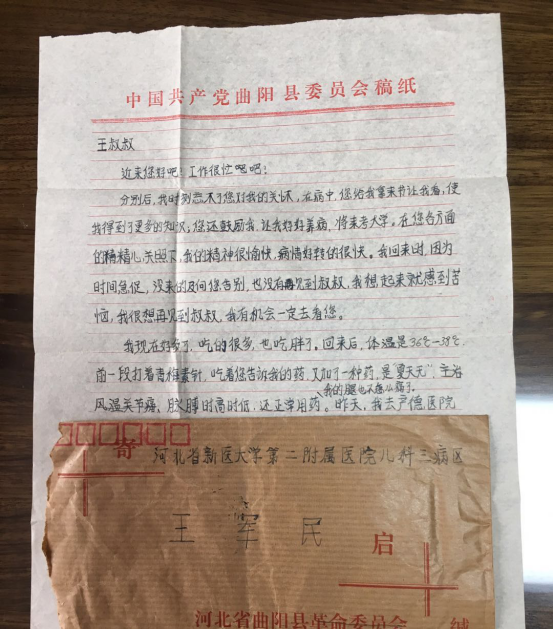 中国共产党曲阳县委员会稿纸
王叔叔
近来您好吧！工作很忙吧！
分别后，我时刻忘不了您对我的关怀，在病中，您给我拿来书让我看，使
我得到了更多的知识，您还鼓励我，让我好好养病，将来考大学。在您各方面
的精心关照下，我的精神很愉快，病情好转的很快。我回来时，因为
时间急促，没来的及向您告别，也没有再见到叔叔，我想起来就感到苦
恼，我很想再见到叔叔，我有机会一定去看您。
我现在好多了，吃的很多，也吃胖了。回来后，体温是36℃—37℃
前一段打着青霉素针，吃着您告诉我的药，又加了一种药，是“夏天无”，主治
我的腿也不怎么痛了。
风湿关节痛，肿时高时低，还正常用药。昨天，我去
医院
寄
河北省新医大学第二附属医院儿科三病区
王军民
启
河北省曲阳县革命委员会 缄